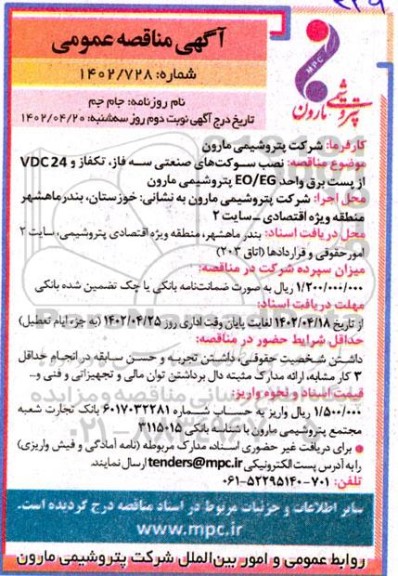 آگهی مناقصه عمومی
شماره: ۱۴۰۲/۷۲۸
نام روزنامه: جام جم
تاریخ درج آگهی نوبت دوم روز سه‌شنبه: ۱۴۰۲/۰۴/۲۰
MPC
پتروشیمی مارون
کارفرما: شرکت پتروشیمی مارون
موضوع مناقصه: نصب سوکت‌های صنعتی سه فاز، تکفاز و VDC24
از پست برق واحد EO/EG پتروشیمی مارون
محل اجرا: شرکت پتروشیمی مارون به نشانی: خوزستان، بندرماهشهر
منطقه ویژه اقتصادی - سایت ۲
محل دریافت اسناد: بندر ماهشهر، منطقه ویژه اقتصادی پتروشیمی، سایت ۲
امور حقوقی و قراردادها (اتاق ۲۰۳)
میزان سپرده شرکت در مناقصه:
۱/۲۰۰/۰۰۰/۰۰۰ ریال به صورت ضمانت‌نامه بانکی یا چک تضمین شده بانکی
مهلت دریافت اسناد:
از تاریخ ۱۴۰۲/۰۴/۱۸ لغایت پایان وقت اداری روز ۱۴۰۲/۰۴/۲۵ (به جز ایام تعطیل)
حداقل شرایط حضور در مناقصه:
داشتن شخصیت حقوقی، داشتن تجربه و حسن سابقه در انجام حداقل
۳ کار مشابه، ارائه مدارک مثبته دال برداشتن توان مالی و تجهیزاتی و فنی و...
قیمت اسناد و نحوه واریز:
۱/۵۰۰/۰۰۰ ریال واریز به حساب شماره ۶۰۱۷۰۳۲۲۸۱ بانک تجارت شعبه
مجتمع پتروشیمی مارون با شناسه بانکی ۳۱۱۵۰۱۵
● برای دریافت غیر حضوری اسناد، مدارک مربوطه (نامه آمادگی و فیش واریزی)
را به آدرس پست الکترونیکی tenders@mpc.ir ارسال نمایند.
تلفن: ۷۰۱-۵۲۲۹۵۱۴۰-۰۶۱
سایر اطلاعات و جزئیات مربوط در اسناد مناقصه درج گردیده است.
www.mpc.ir
روابط عمومی و امور بین‌الملل شرکت پتروشیمی مارون